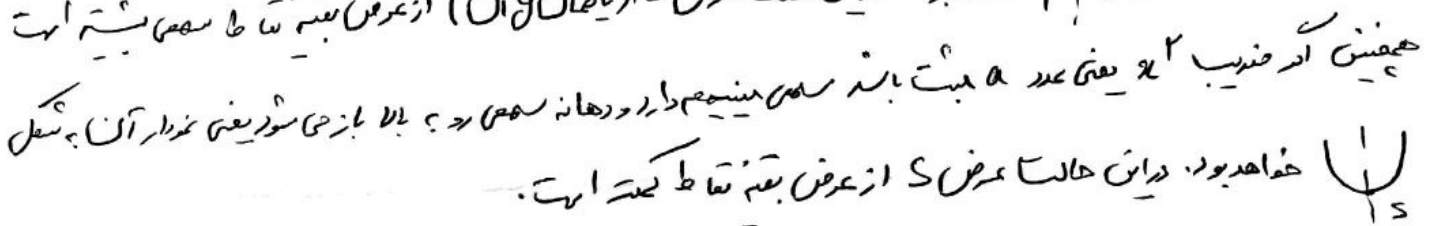 از عرض بقیه نقاط سهمی بیشتر است
همچنین اگر ضریب x² یعنی عدد a مثبت باشد سهمی مینیمم دارد و دهانه سهمی رو به بالا باز می شود یعنی نمودار آن به شکل
خواهد بود. در این حالت عرض S از عرض بقیه نقاط کمتر است.
S